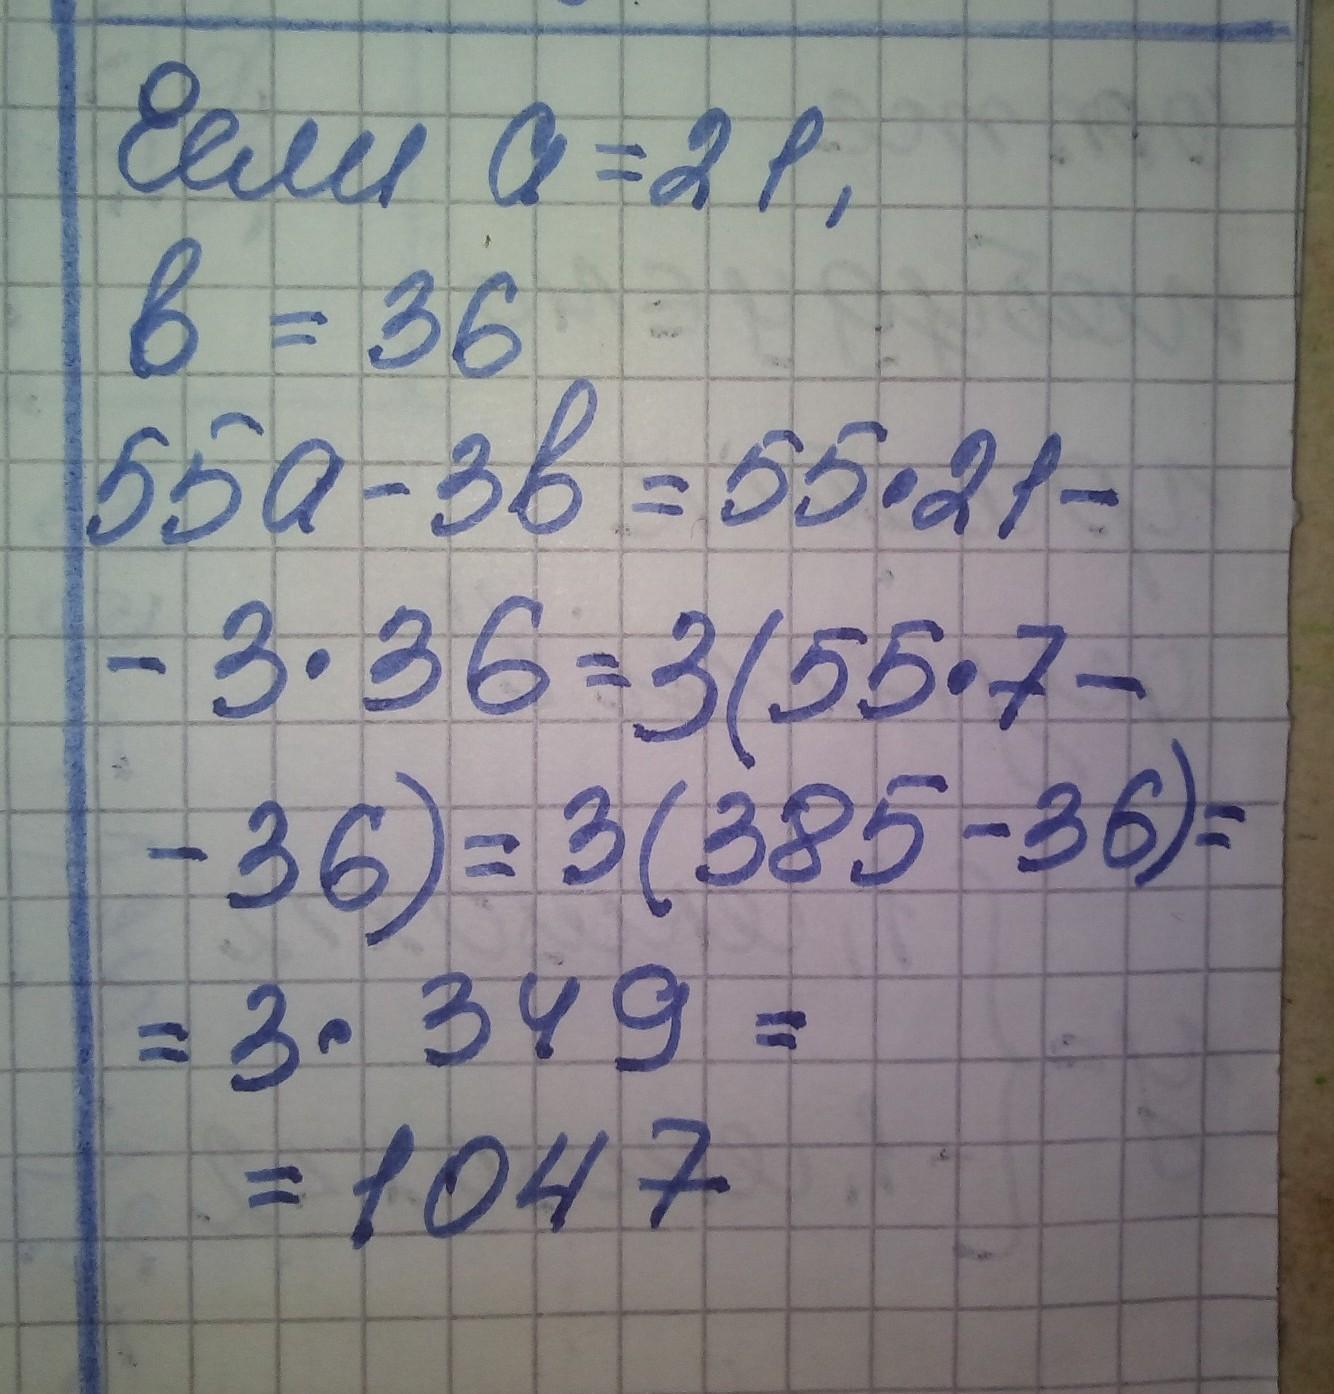 Если a = 21,
в = 36
55a - 3в = 55·21 -
- 3·36 = 3(55·7 -
- 36) = 3(385 - 36) =
= 3·349 =
= 1047